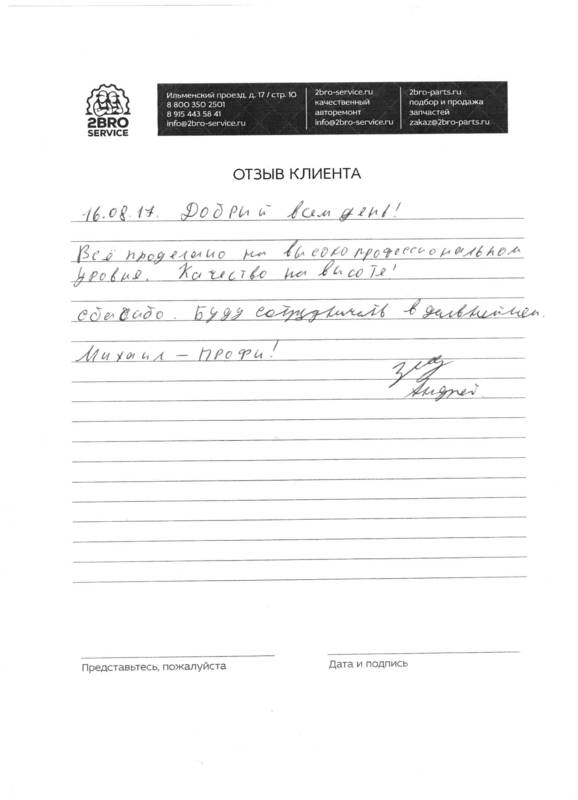 2BRO
SERVICE
Ильменский проезд, д. 17 / стр. 10
8 800 350 2501
8 915 443 58 41
info@2bro-service.ru
2bro-service.ru
качественный
авторемонт
info@2bro-service.ru
2bro-parts.ru
подбор и продажа
запчастей
zakaz@2bro-parts.ru
ОТЗЫВ КЛИЕНТА
16.08.17. Добрый всем день!
Всё проделано на высокопрофессиональном
уровне. Качество на высоте!
Спасибо. Буду сотрудничать в дальнейшем.
Михаил – ПРОФИ!
Андрей.
Представьтесь, пожалуйста
Дата и подпись